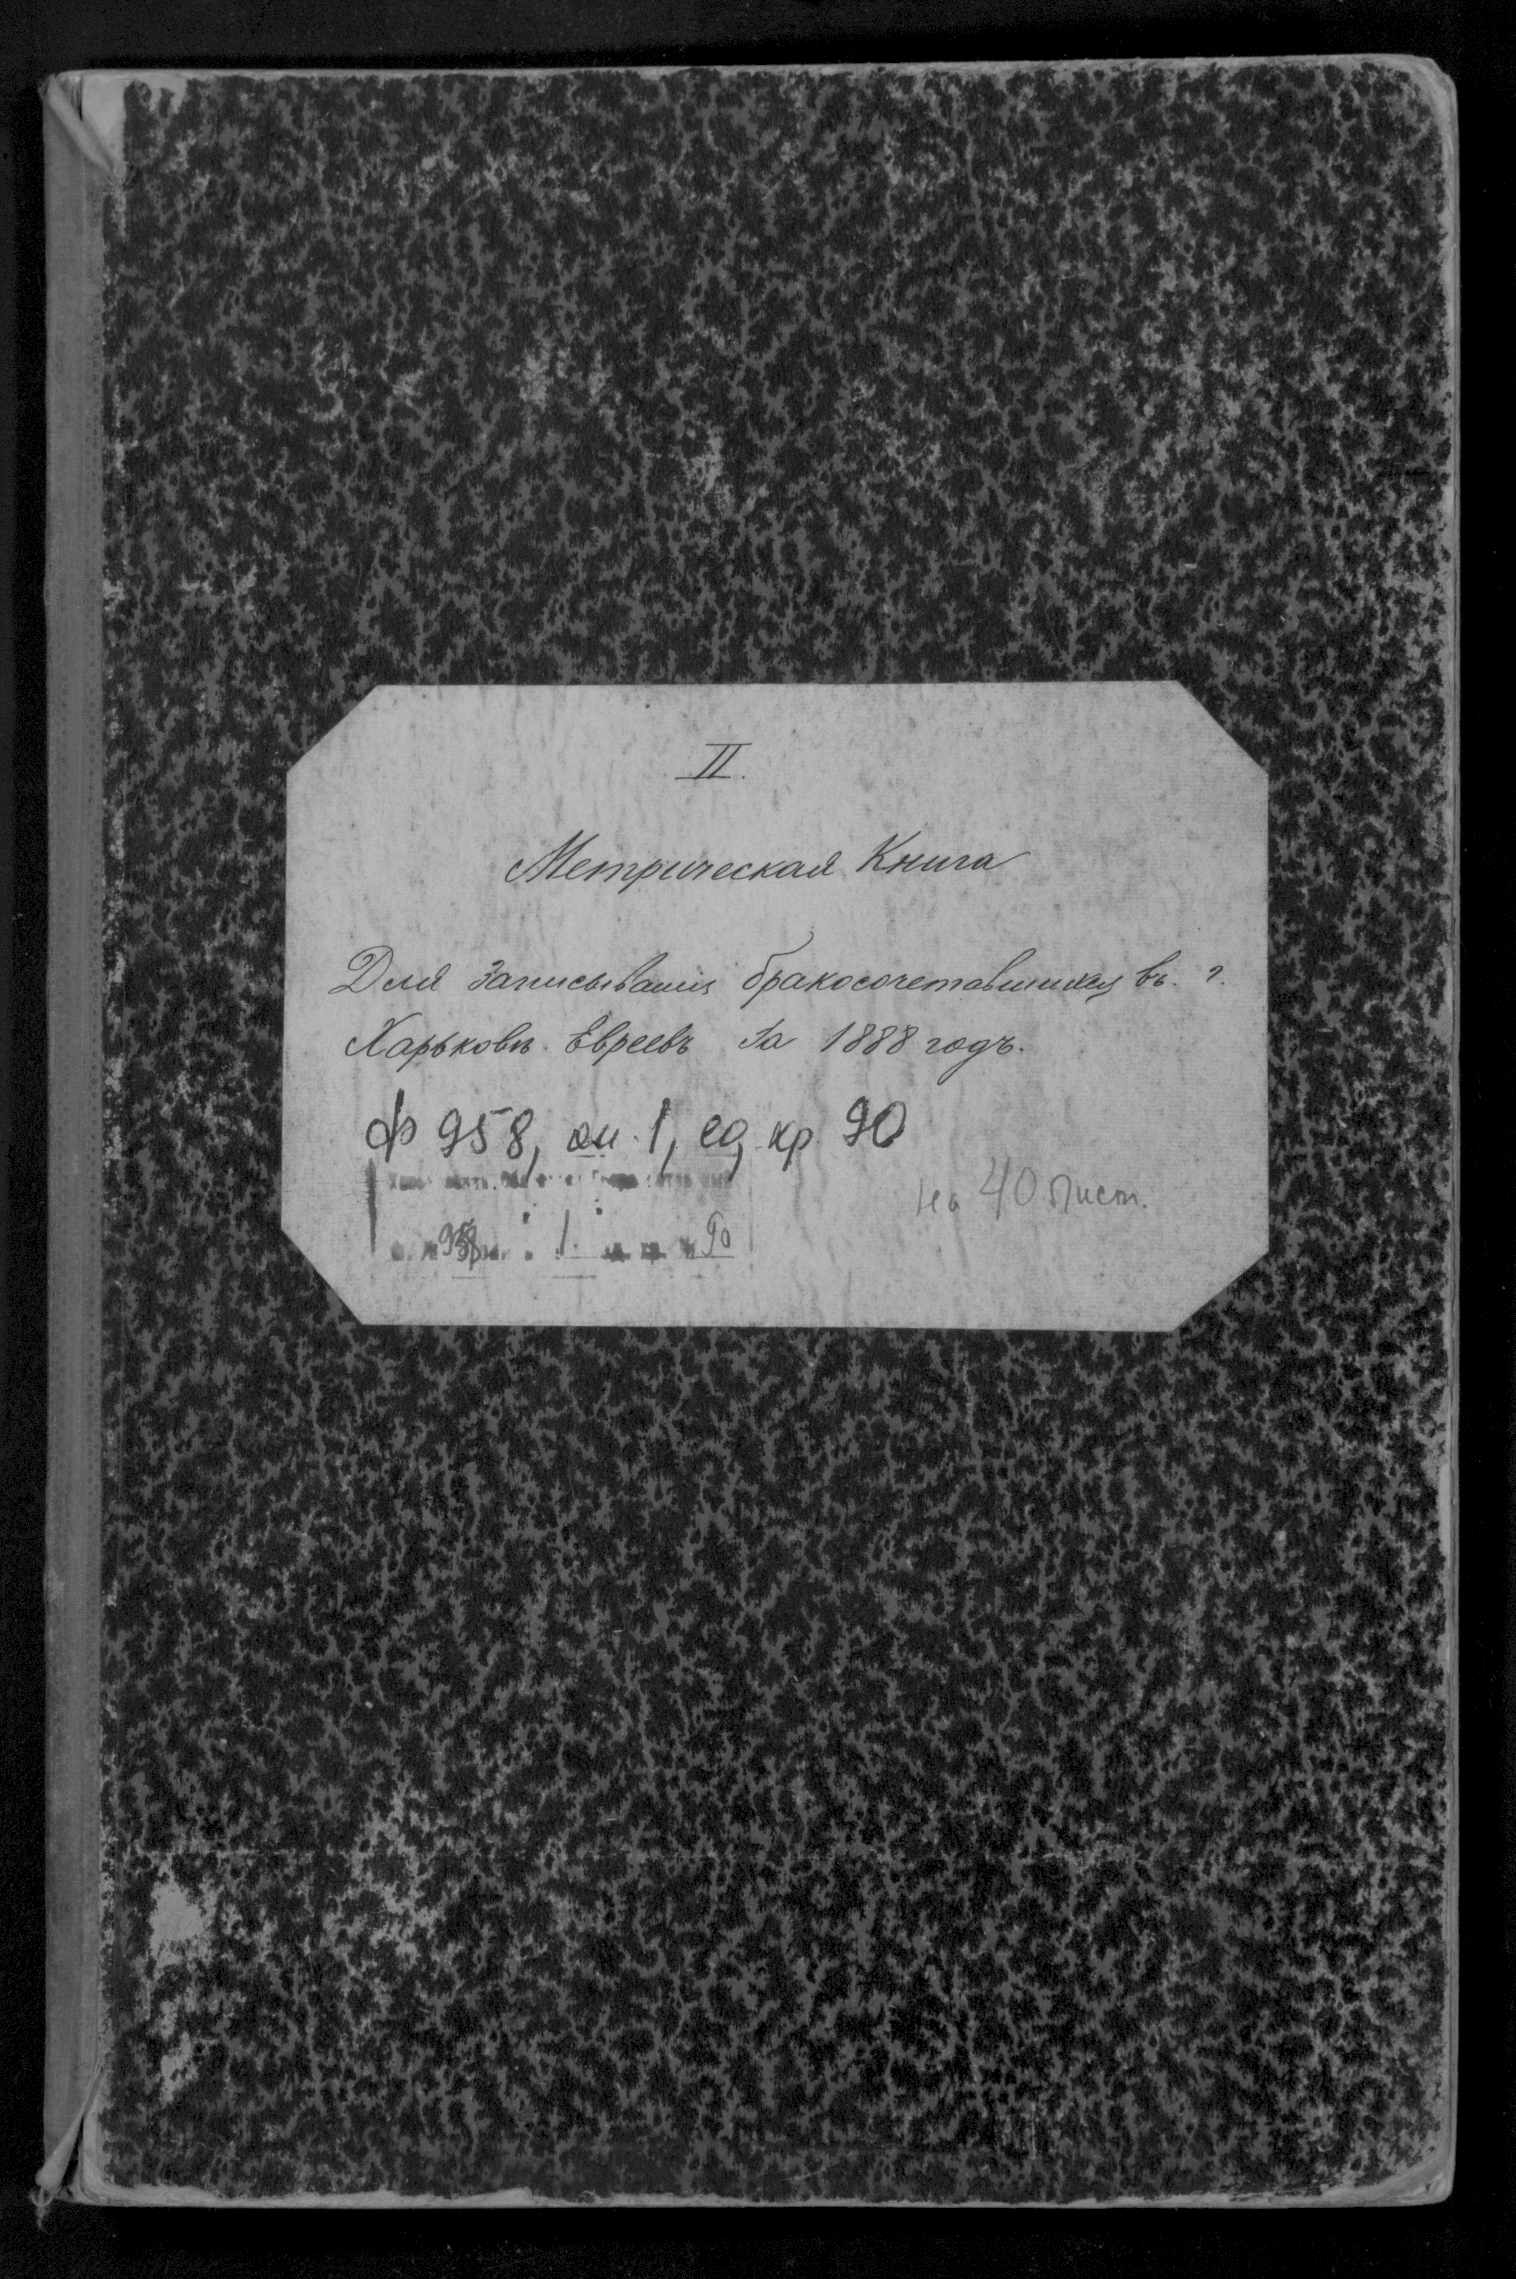 II.
Метрическая Книга
Для записыванія бракосочетавшихся въ г.
Харьковѣ Евреевъ за 1888 годъ.
ф 958, оп. 1, ед хр 90
на 40 лист.
958 1 90